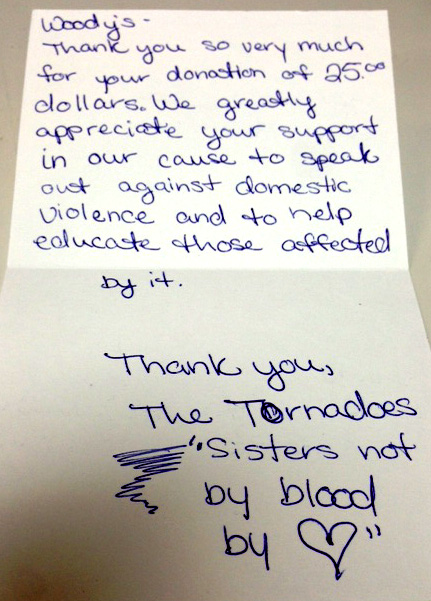 Woody's -
Thank you so very much
for your donation of 25.00
dollars. We greatly
appreciate your support
in our cause to speak
out against domestic
violence and to help
educate those affected
by it.
Thank you,
The Tornadoes
"Sisters not
by blood
by ♡"